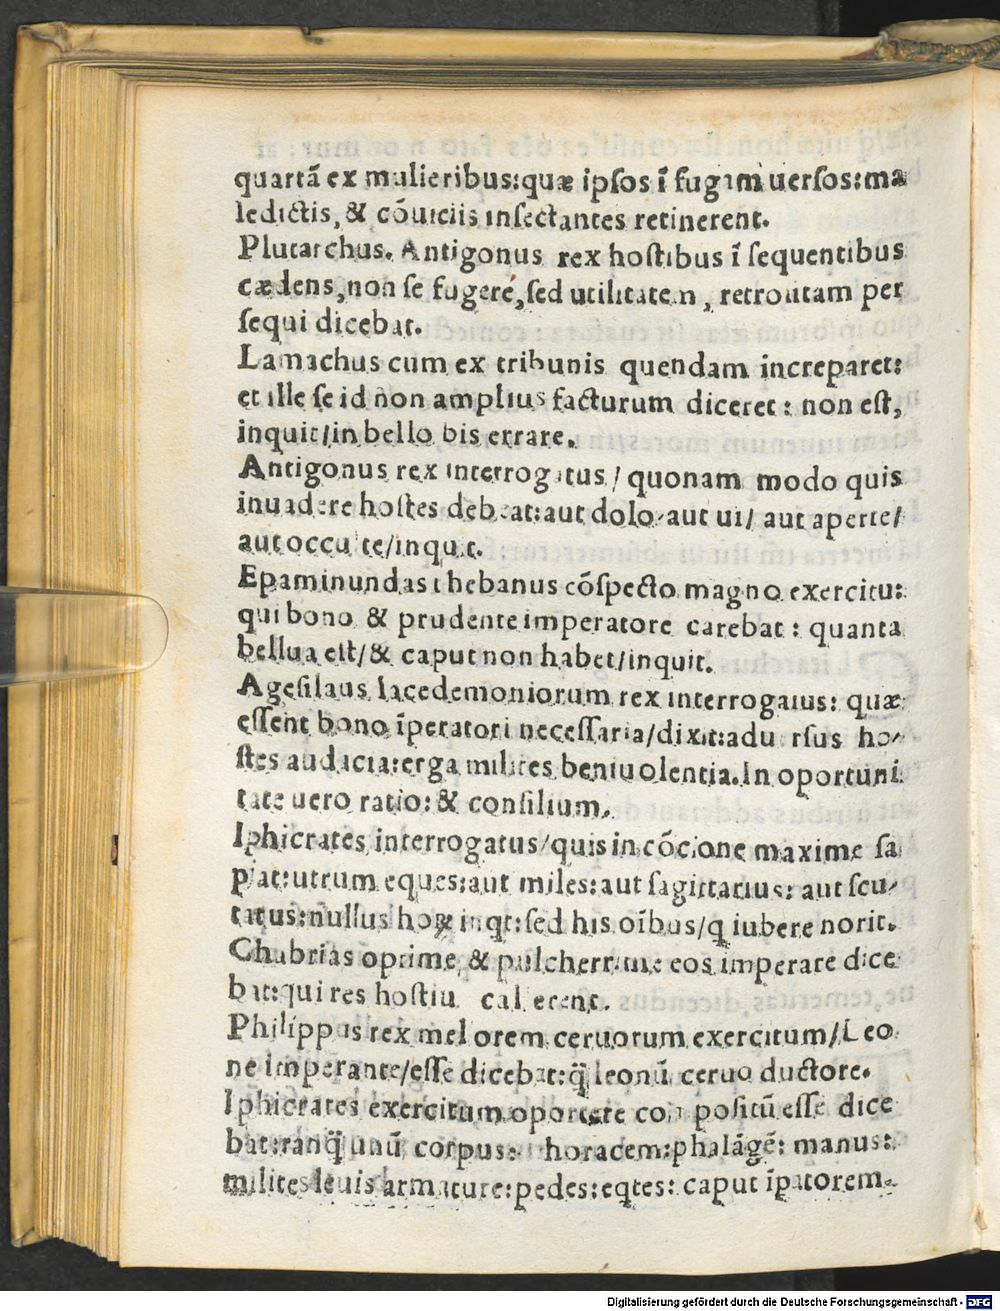 quartā ex mulieribus:quæ ipsos ī fugam uersos:ma
ledictis, & cōuiciis insectantes retinerent.
Plutarchus. Antigonus rex hostibus ī sequentibus
cædens, non se fugere, sed utilitatem, retroutam per
sequi dicebat.
Lamachus cum ex tribunis quendam increparet:
et ille se id non amplius facturum diceret: non est,
inquit/in bello bis errare.
Antigonus rex interrogatus/ quonam modo quis
inuadere hostes debeat:aut dolo aut ui/ aut aperte/
aut occulte/inquit.
Epaminundas thebanus cōspecto magno exercitu:
qui bono & prudente imperatore carebat: quanta
bellua est/& caput non habet/inquit.
Agesilaus lacedemoniorum rex interrogatus: quæ
essent bono īperatori necessaria/dixit:aduersus ho-
stes audacia:erga milites beniuolentia.In oportuni
tate uero ratio: & consilium.
Iphicrates interrogatus/quis in cōcione maxime sa
piat:utrum eques:aut miles:aut sagittarius: aut scu-
tatus:nullus hoꝝ inqt:sed his oībus/q iubere norit.
Chabrias optime, & pulcherrime eos imperare dice
bat:qui res hostiū callerent.
Philippus rex meliorem ceruorum exercitum/Leo
ne imperante/esse dicebat:q̄ leonū ceruo ductore.
Iphicrates exercitum oportere compositū esse dice
bat:tanq̄ unū corpus: thoracem:phalāgē: manus:
milites leuis armature:pedes:eqtes: caput īpatorem.
Digitalisierung gefördert durch die Deutsche Forschungsgemeinschaft - DFG